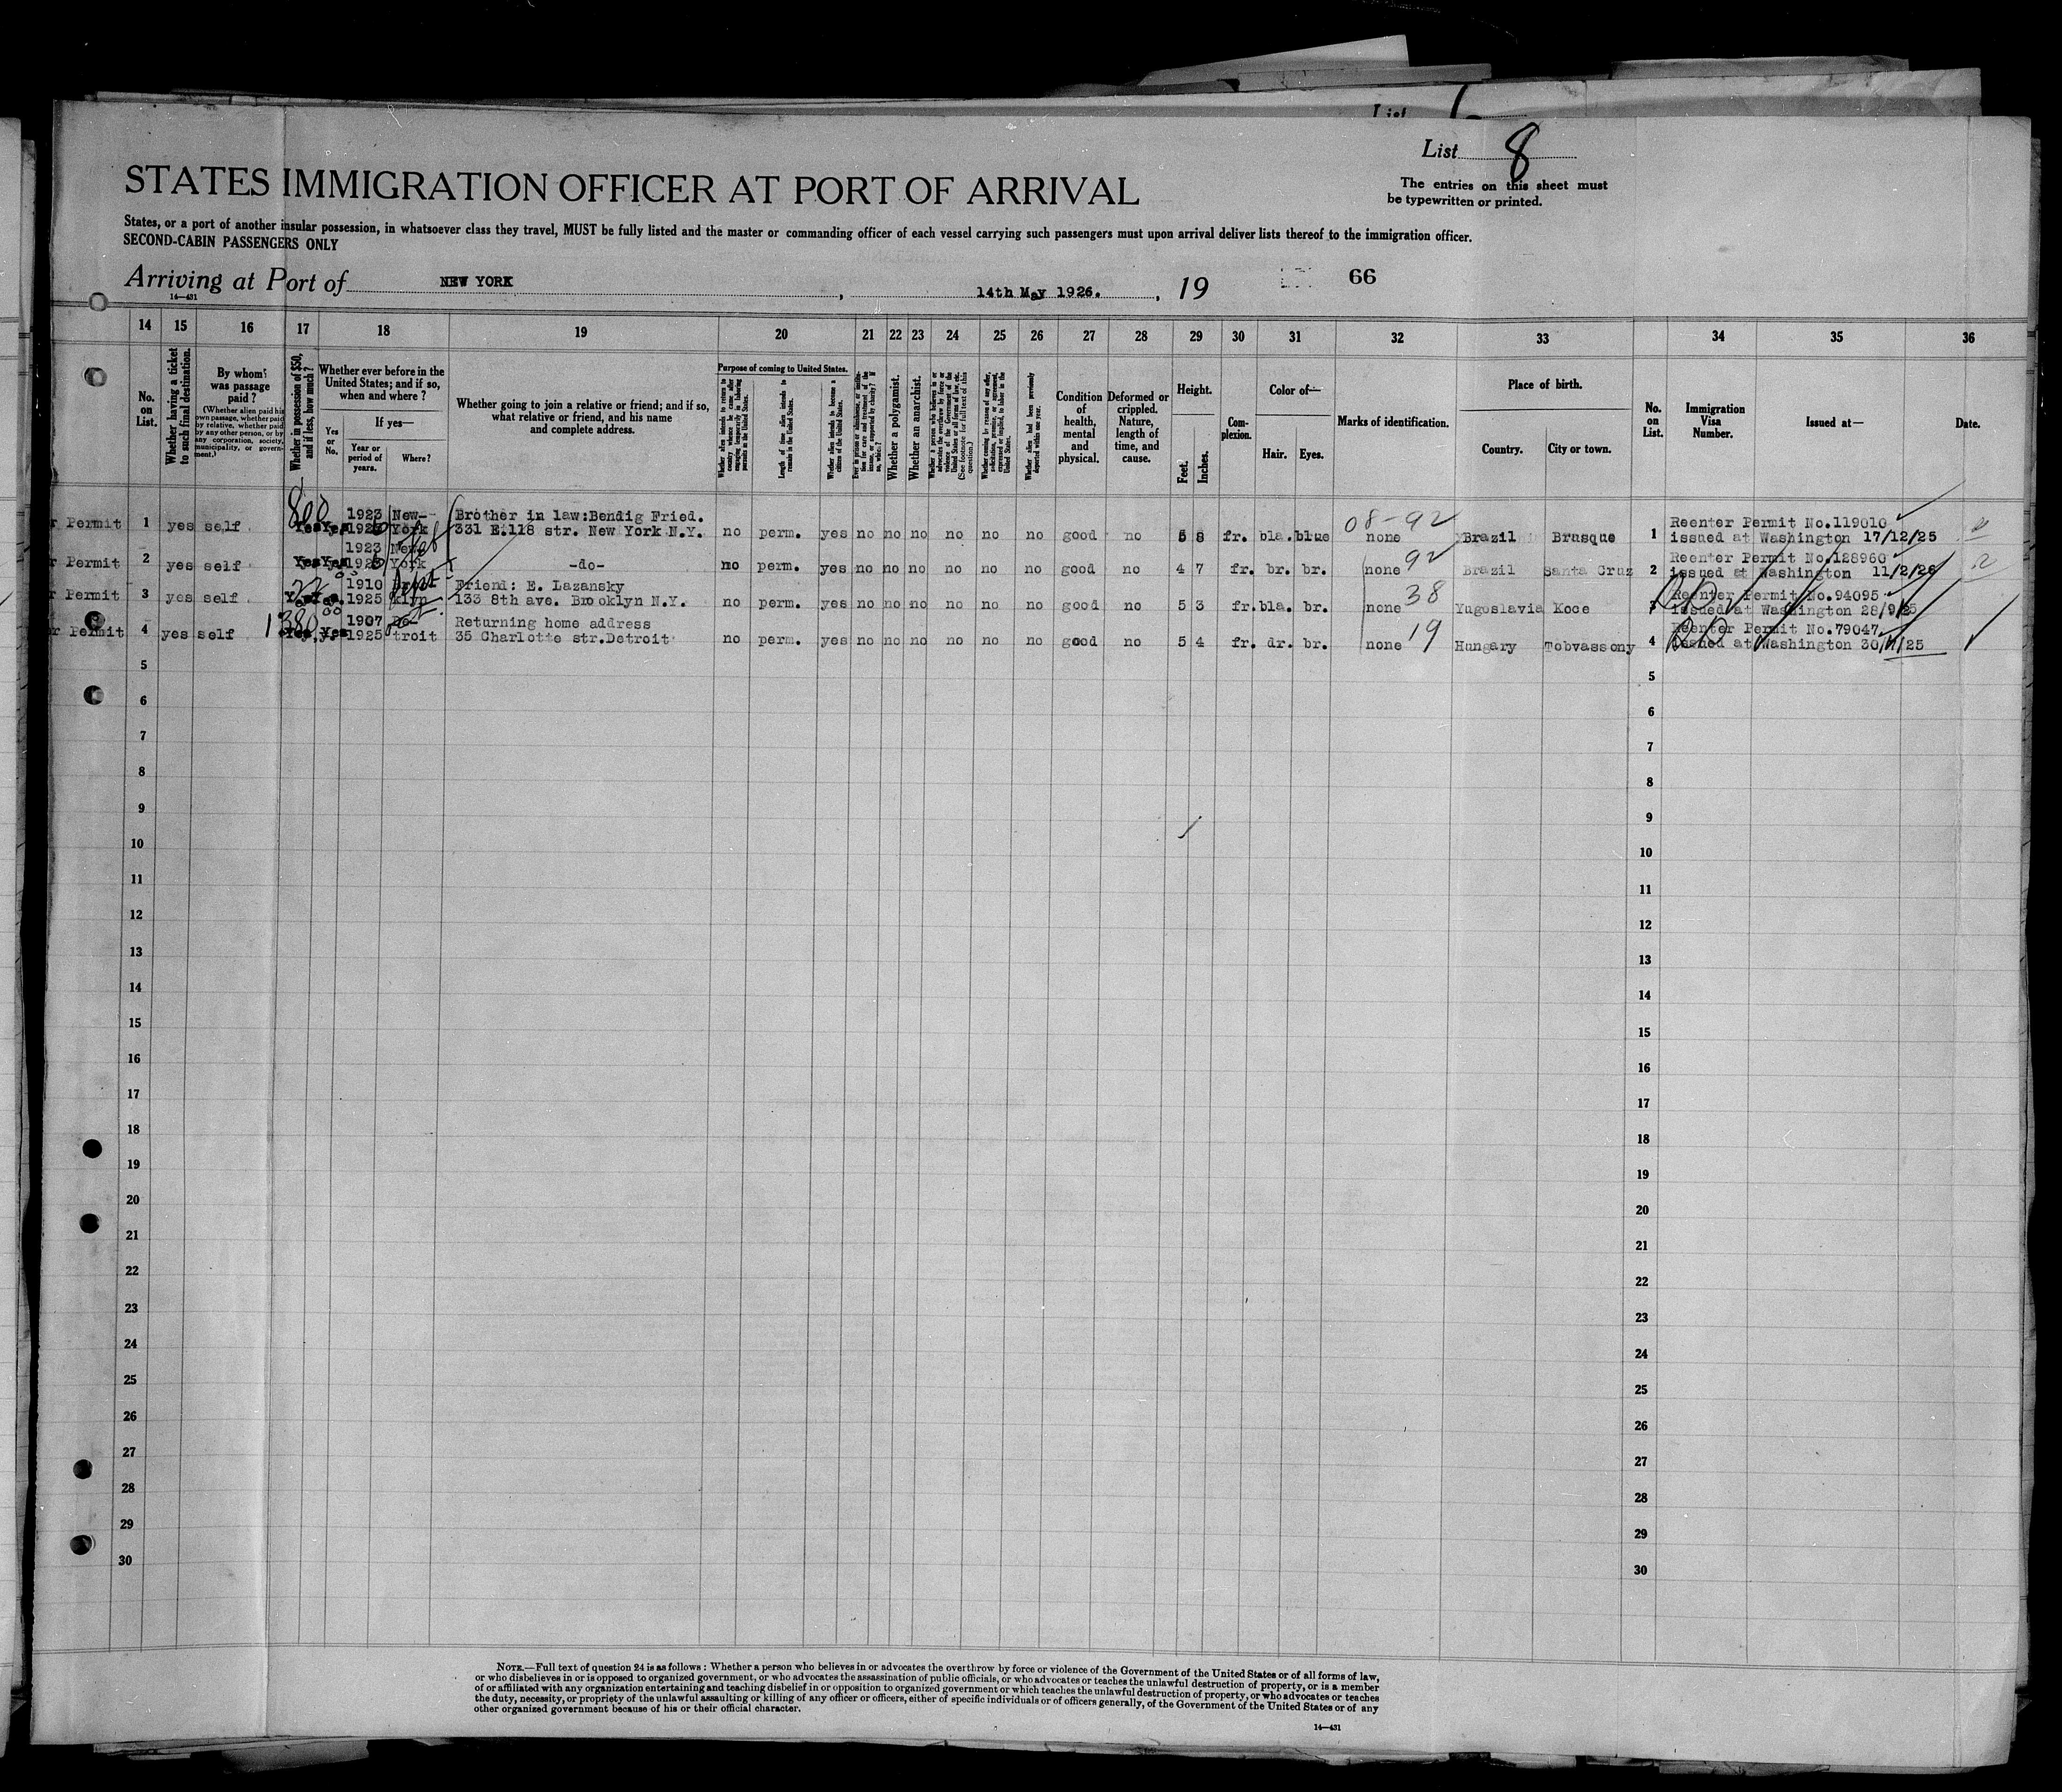 List
List 8
STATES IMMIGRATION OFFICER AT PORT OF ARRIVAL
The entries on this sheet must
be typewritten or printed.
States, or a port of another insular possession, in whatsoever class they travel, MUST be fully listed and the master or commanding officer of each vessel carrying such passengers must upon arrival deliver lists thereof to the immigration officer.
SECOND-CABIN PASSENGERS ONLY
Arriving at Port of NEW YORK, 14th May 1926., 19 66
14—431
14 15 16 17 18 19 20 21 22 23 24 25 26 27 28 29 30 31 32 33 34 35 36
No. on List.
Whether having a ticket to such final destination.
By whom was passage paid?
(Whether alien paid his own passage, whether paid by relative, whether paid by any other person, or by any corporation, society, municipality, or government.)
Whether in possession of $50, and if less, how much?
Whether ever before in the United States; and if so, when and where?
If yes—
Yes or No.
Year or period of years.
Where?
Whether going to join a relative or friend; and if so, what relative or friend, and his name and complete address.
Purpose of coming to United States.
Length of time alien intends to remain in the United States.
Whether alien intends to become a citizen of the United States.
Whether a polygamist.
Whether an anarchist.
(See footnote for full text of this question.)
Whether alien had been previously deported within one year.
Condition of health, mental and physical.
Deformed or crippled. Nature, length of time, and cause.
Height.
Feet.
Inches.
Complexion.
Color of—
Hair. Eyes.
Marks of identification.
Place of birth.
Country.
City or town.
No. on List.
Immigration Visa Number.
Issued at—
Date.
800 1923 New- Brother in law:Bendig Fried. 08-92 Reenter Permit No.119010
r Permit 1 yes self Yes Yes York 331 E.118 str. New York N.Y. no perm. yes no no no no no no good no 5 8 fr. bla. blue none Brazil Brusque 1 issued at Washington 17/12/25
1923 New 92 Reenter Permit No.128960
r Permit 2 yes self Yes Yes York -do- no perm. yes no no no no no no good no 4 7 fr. br. br. none Brazil Santa Cruz 2 issued at Washington 11/2/26
1910 Friend: E. Lazansky 38 Reenter Permit No.94095
r Permit 3 yes self 1925 klyn 133 8th ave. Brooklyn N.Y. no perm. yes no no no no no no good no 5 3 fr. bla. br. none Yugoslavia Koce 3 issued at Washington 28/9/25
1380 00 1907 De- Returning home address 19 Reenter Permit No.79047
r Permit 4 yes self Yes. yes 1925 troit 35 Charlotte str.Detroit no perm. yes no no no no no no good no 5 4 fr. dr. br. none Hungary Tobvassony 4 issued at Washington 30/ /25
5 5
6 6
7 7
8 8
9 9
10 10
11 11
12 12
13 13
14 14
15 15
16 16
17 17
18 18
19 19
20 20
21 21
22 22
23 23
24 24
25 25
26 26
27 27
28 28
29 29
30 30
NOTE.—Full text of question 24 is as follows: Whether a person who believes in or advocates the overthrow by force or violence of the Government of the United States or of all forms of law,
or who disbelieves in or is opposed to organized government, or who advocates the assassination of public officials, or who advocates or teaches the unlawful destruction of property, or is a member
of or affiliated with any organization entertaining and teaching disbelief in or opposition to organized government or which teaches the unlawful destruction of property, or who advocates or teaches
the duty, necessity, or propriety of the unlawful assaulting or killing of any officer or officers, either of specific individuals or of officers generally, of the Government of the United States or of any
other organized government because of his or their official character.
14—431